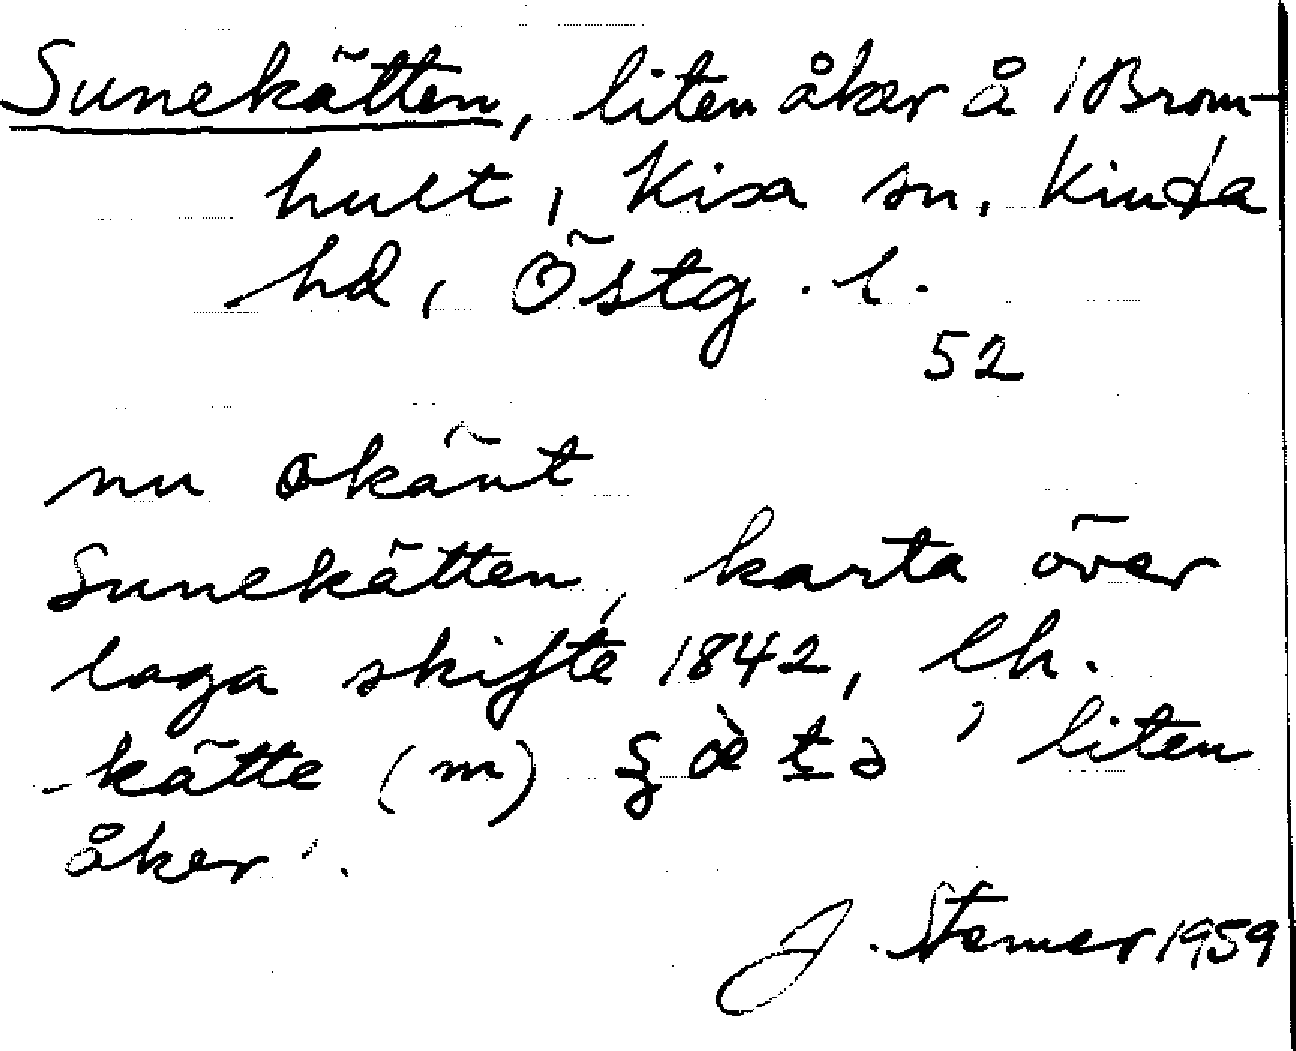 Sunekätten, liten åker å 1 Brom-
hult, Kisa sn, Kinda
hd, Östg. l.
52
nu okänt
Sunekätten, karta över
laga skifte 1842, lh.
kätte (m) ʂæ̀tə 'liten
åker'.
J. Stemer 1959